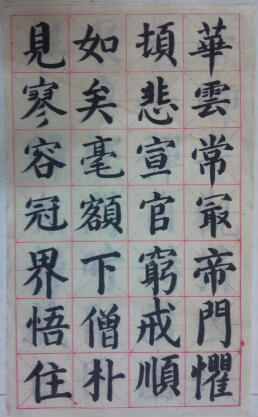 華雲常冣帝門懼
頃悲宣官窮戒順
如矣毫額下僧朴
見寒容冠界悟住